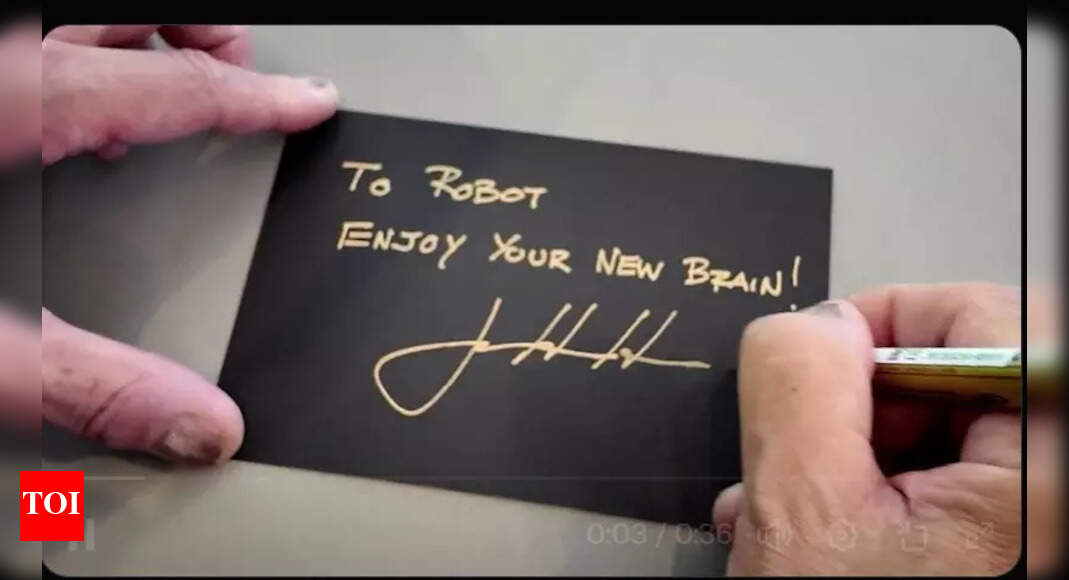 TO ROBOT
ENJOY YOUR NEW BRAIN!
TOI
0:03 / 0:36